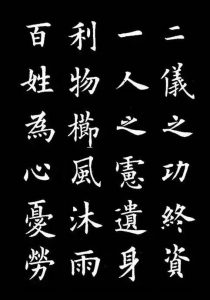 二儀之功終資
一人之憲遺身
利物櫛風沐雨
百姓為心憂勞